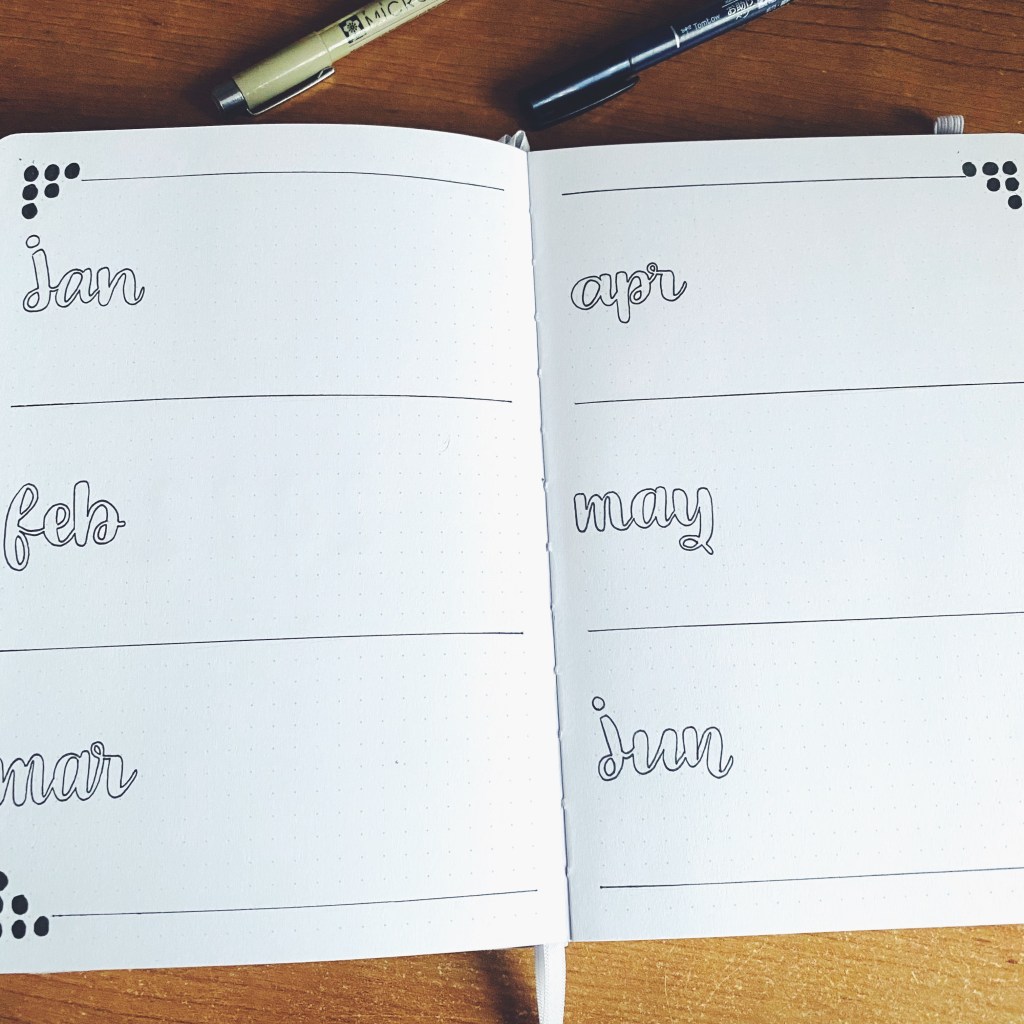 MICRO
Tombow
jan
feb
mar
apr
may
jun